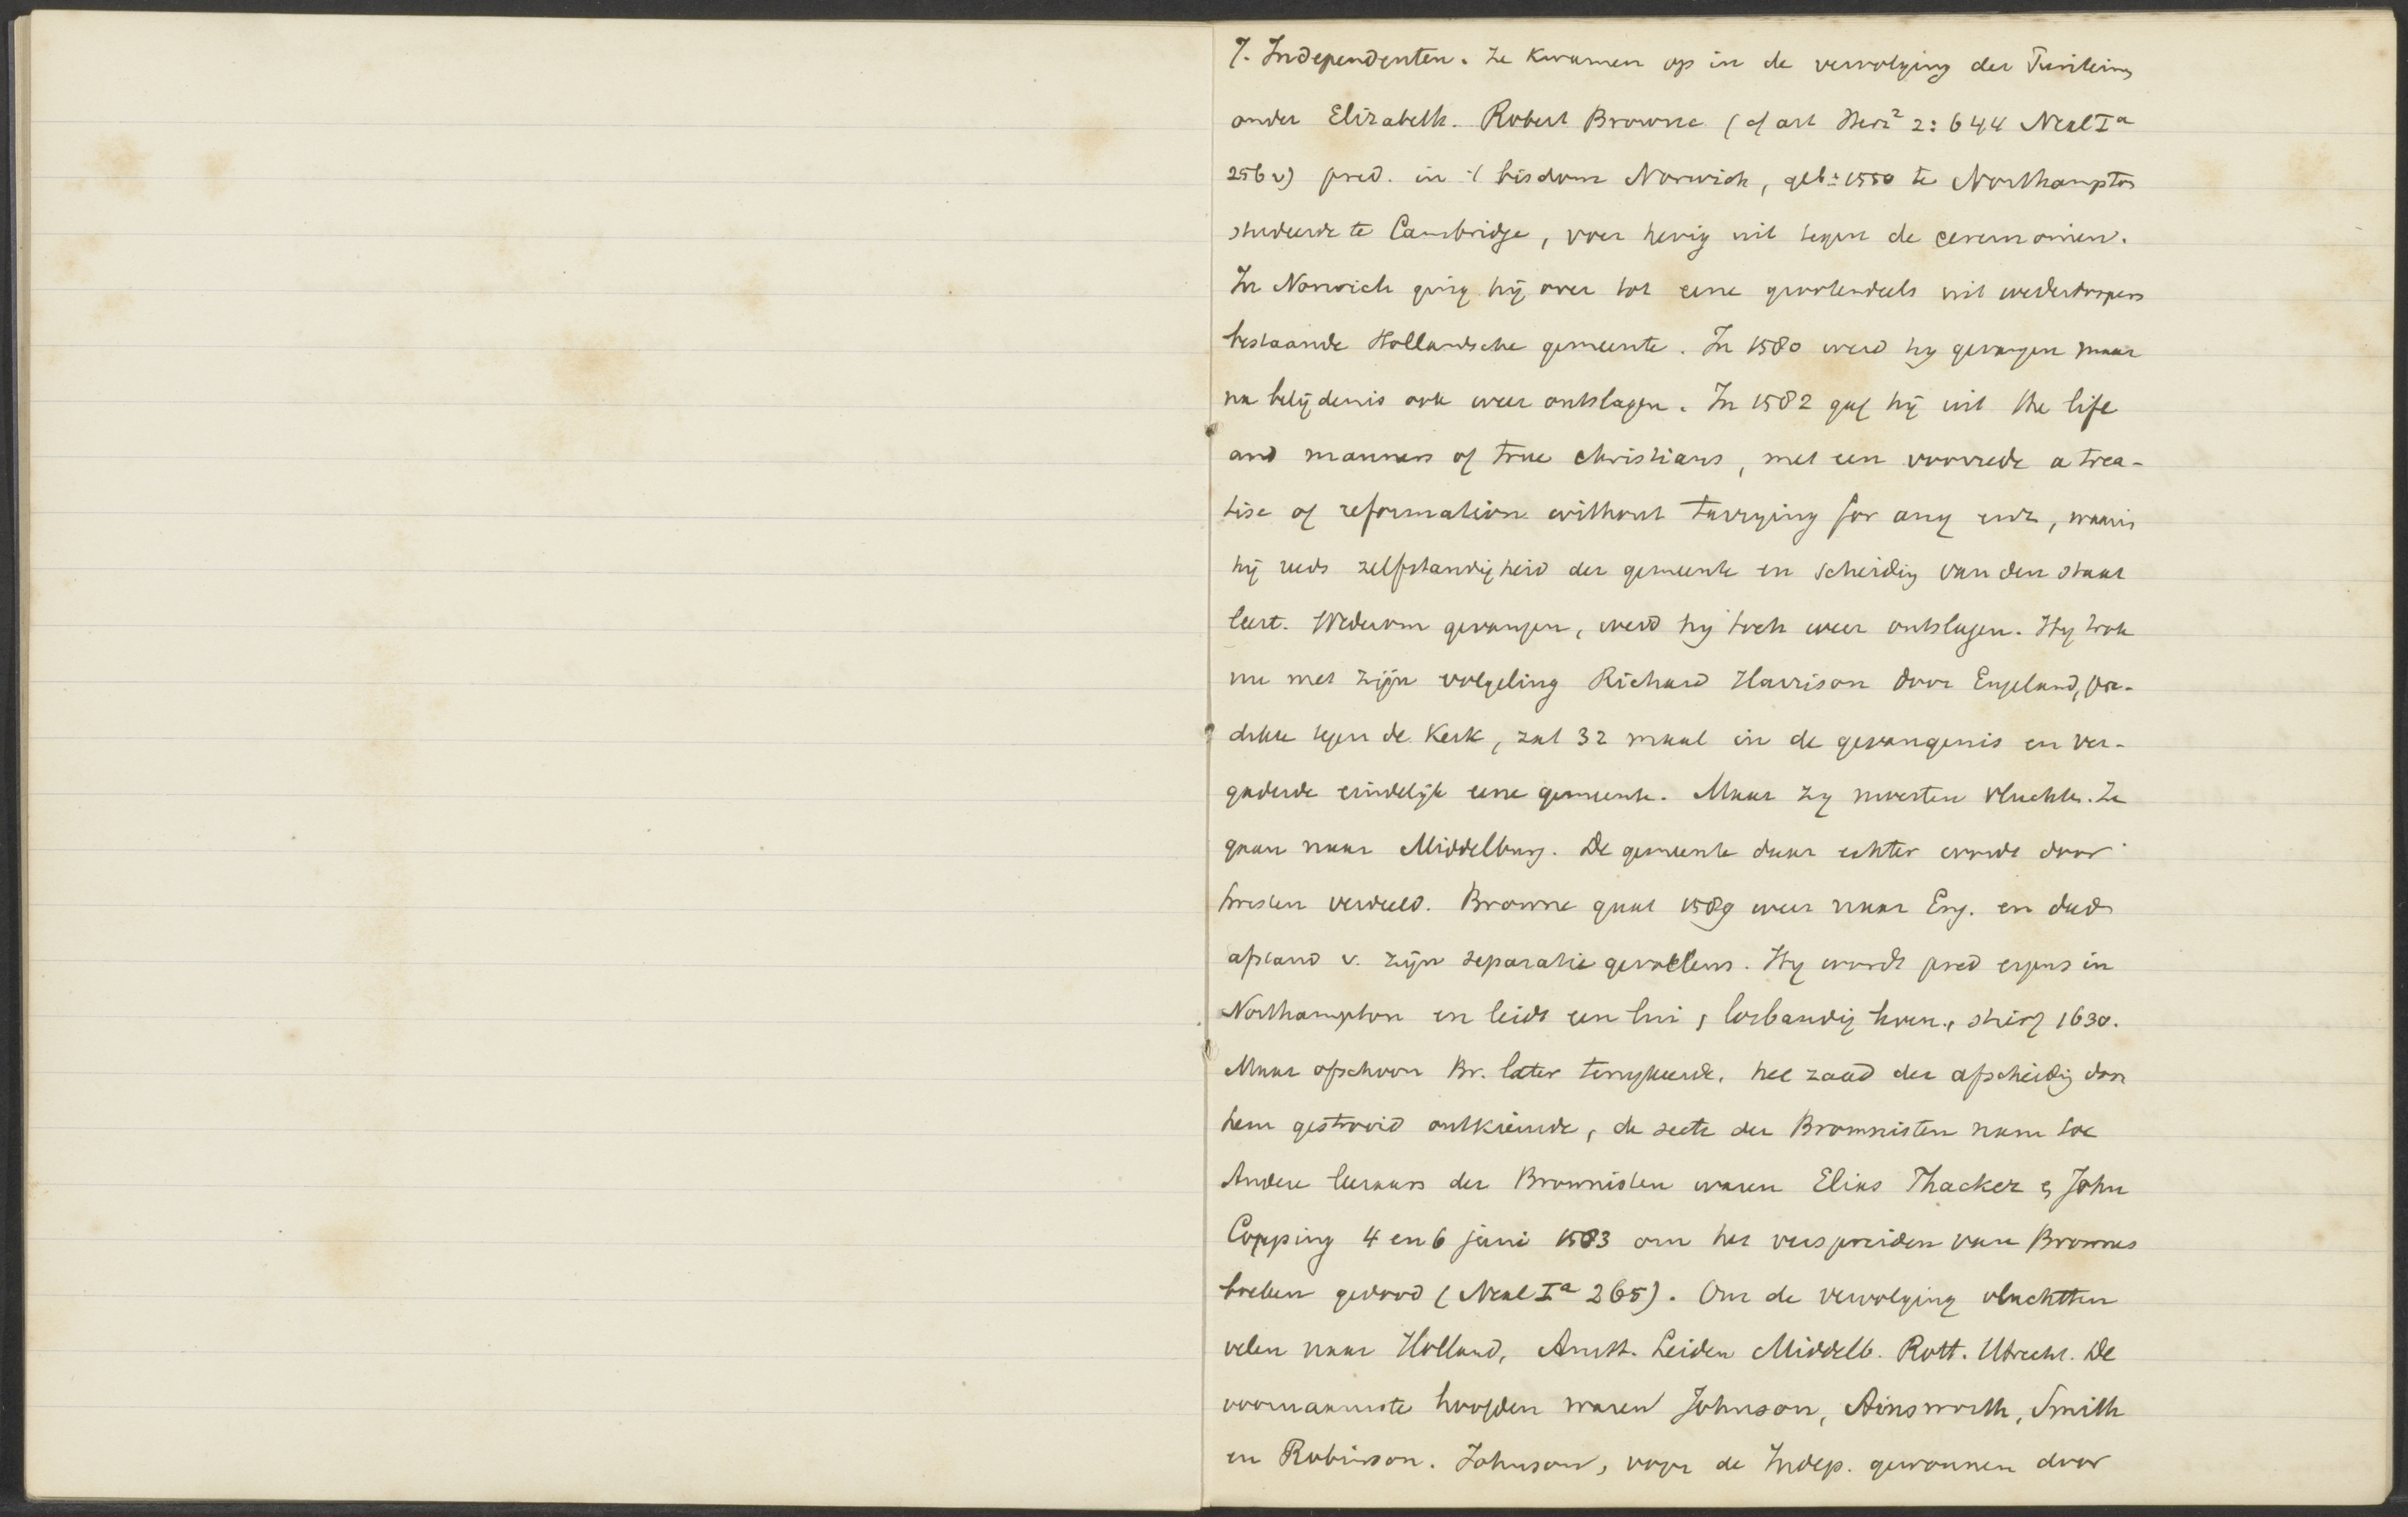 7. Independenten. Ze kwamen op in de vervolging der Puriteins
onder Elizabeth. Robert Browne (cf art Herz² 2:644 Neal Iª
256v) pred. in 't bisdom Norwich, geb ± 1550 te Northampton
studeerde te Cambridge, voer hevig uit tegen de ceremoniën.
In Norwich ging hij over tot eene grootendeels uit wederdoopers
bestaande Hollandsche gemeente. In 1580 werd hij gevangen maar
na belijdenis ook weer ontslagen. In 1582 gaf hij uit the life
and manners of true christians, met een voorrede a trea-
tise of reformation without tarrying for any, waarin
hij reeds zelfstandigheid der gemeente en scheiding van den staat
leert. Wederom gevangen, werd hij toch weer ontslagen. Hij trok
nu met zijn volgeling Richard Harrison door Engeland, pre-
dikte tegen de Kerk, zat 32 maal in de gevangenis en ver-
gaderde eindelijk eene gemeente. Maar zij moesten vluchten. Ze
gaan naar Middelburg. De gemeente daar echter wordt door
twisten verdeeld. Browne gaat 1589 weer naar Eng. en deed
afstand v. zijn separatie gevoelens. Hij wordt pred ergens in
Northampton en leidt een lui, losbandig leven, stierf 1630.
Maar ofschoon Br. later terugkeerde, het zaad der afscheidig door
hem gestrooid ontkiemde, de secte der Brownisten nam toe
Andere leeraars der Brownisten waren Elias Thacker & John
Copping 4 en 6 juni 1583 om het verspreiden van Brownes
boeken gedood (Neal Iª 265). Om de vervolging vluchtten
velen naar Holland, Amst. Leiden Middelb. Rott. Utrecht. De
voornaamste hoofden waren Johnson, Ainsworth, Smith
en Robinson. Johnson, voor de Indep. gewonnen door